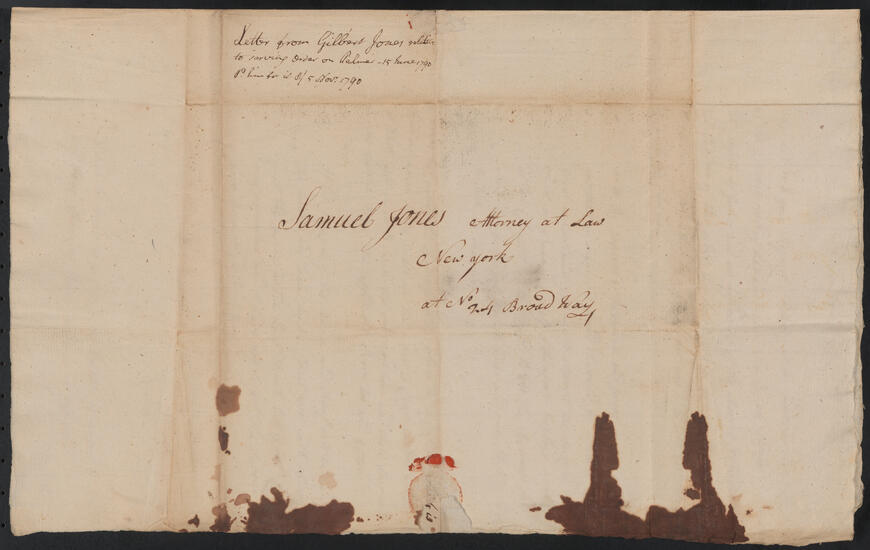 Letter from Gilbert Jones relative
to serving Order on Palmer - 15 June 1790
5 Nov. 1790
Samuel Jones Attorney at Law
New york
at No 24 Broad Way